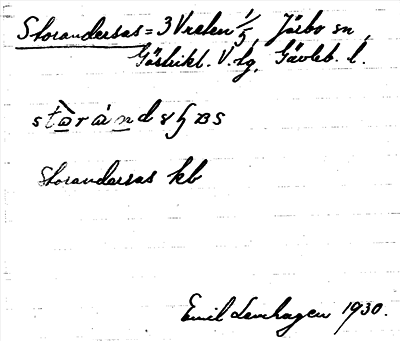 Storandersas = 3 Vreten 1/5, Järbo sn,
Gästrikl. V. tg, Gävleb. l.
Storandersas kb
Emil Lenhagen 1930.